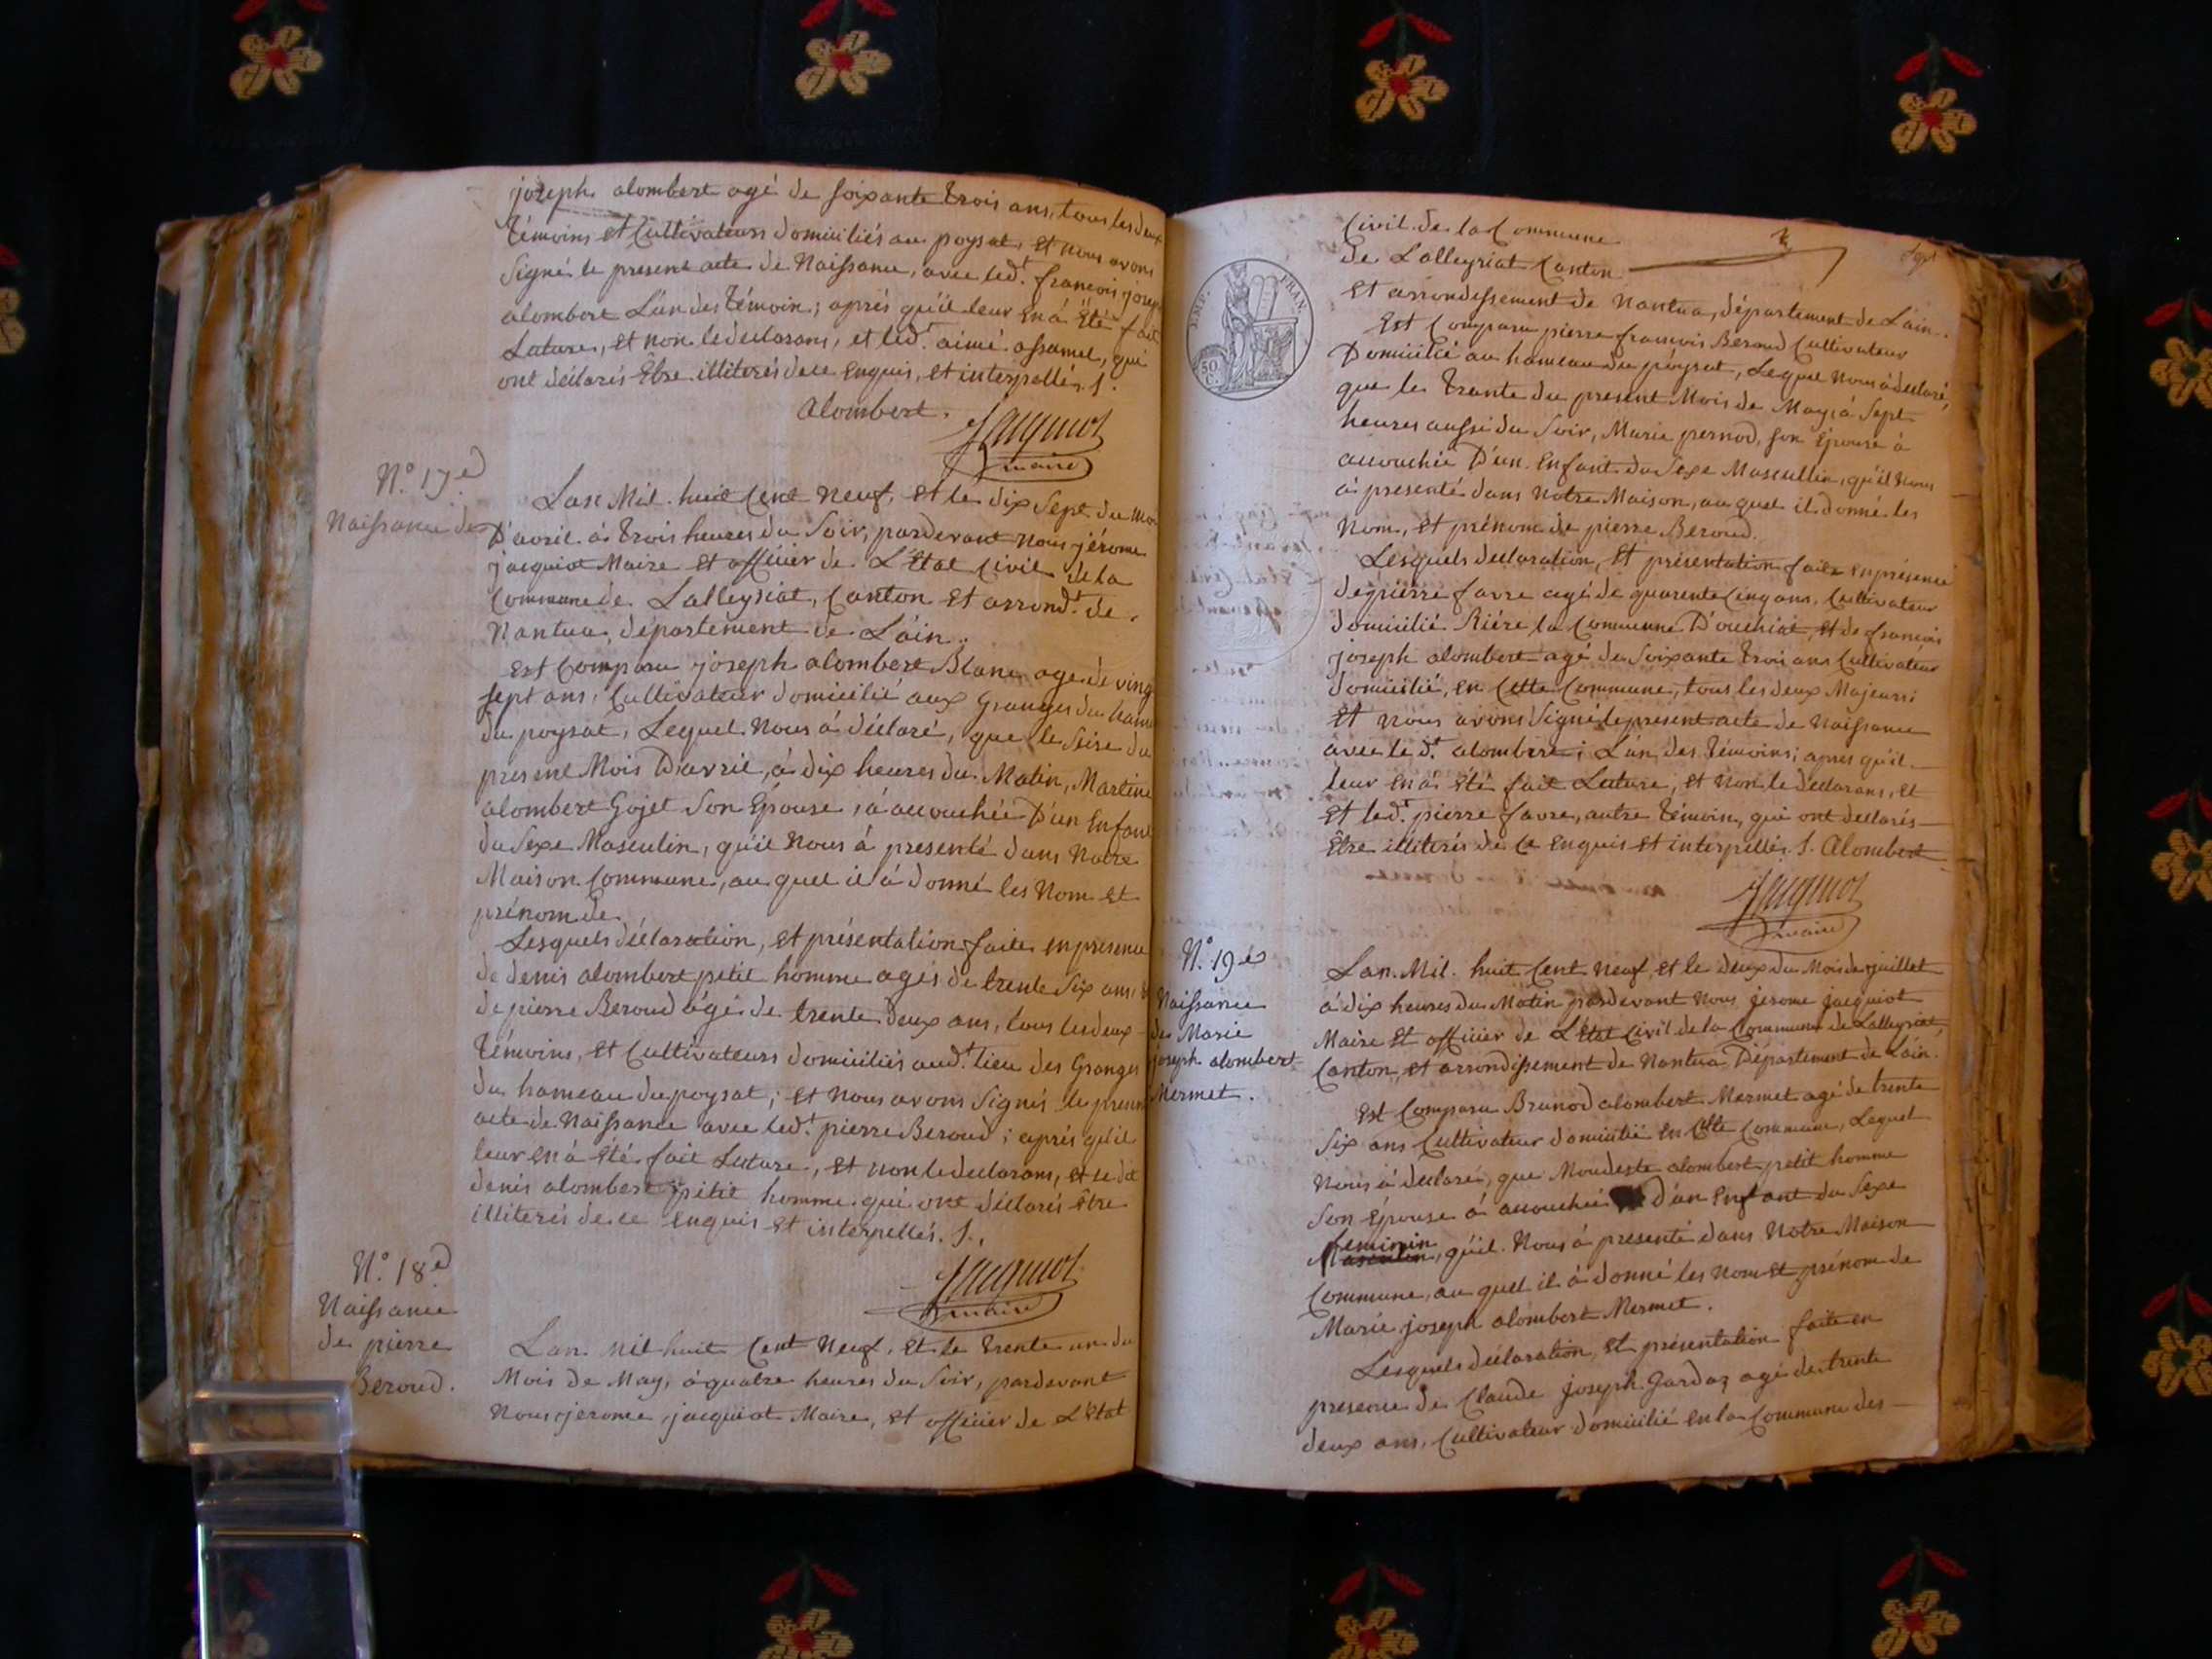 joseph alombert agé de soixante trois ans, tous les deux
témoins et Cultivateurs domiciliés au poysat, et nous avons
Signé le present acte de Naissance, avec led.t françois joseph
alombert L'un des témoin; aprés qu'il leur en à été fait
Lecture, et non le declarans, et led.t aimé assamel, qui
ont déclarés Être illiterés de ce enquis, et interpellés. /.
alombert.
Jacquiot
maire
N.o 17.e
Naissance de
L'an Mil huit Cent Neuf, et le dix Sept du mois
D'avril à trois heures du Soir, pardevant nous jérome
jacquiot Maire et officier de L'État Civil de la
Commune de Lalleyriat, Canton et arrond.t de
Nantua, département de L'áin.
Est Comparu joseph alombert Blanc agé de vingt
sept ans, Cultivateur domicilié aux Granges du hameau
du poysat, Lequel Nous à déclaré, que le Seise du
present Mois D'avril, à dix heures du Matin, Martine
alombert Gojet Son Épouse, à accouchée D'un Enfant
du Sexe Masculin, qu'il Nous à presenté dans Notre
Maison Commune, au quel il à donné les Nom et
prénom de
Lesquels déclaration, et présentation faites en presence
de denis alombert petit homme agés de trente Six ans, et
de pierre Beroud àgé de trente deux ans, tous les deux
témoins, et Cultivateurs domiciliés aud.t lieu des Granges
du hameau du poysat; et nous avons Signés le present
acte de Naissance avec led.t pierre Beroud; aprés qu'il
leur en à été fait Lecture, et non le declarans, et le dit
denis alombert petit homme qui ont déclarés Être
illiterés de ce enquis et interpellés. /.
Jacquiot
maire
N.o 18.e
Naissance
de pierre
Beroud.
L'an Mil huit Cent Neuf, et le trente un du
Mois de May, à quatre heures du Soir, pardevant
Nous jerome jacquiot Maire, et officier de L'État
Sept
Civil de la Commune
de Lalleyriat Canton
EMP. FRAN.
50 C.
et arrondissement de Nantua, département de L'ain.
Est Comparu pierre françois Beroud Cultivateur
Domicilié au hameau du poysat, Lequel Nous à declaré,
que le trente du present Mois de May, à Sept
heures aussi du Soir, Marie pernod, son Épouse à
accouchée D'un Enfant du Sexe Mascullin, qu'il Nous
à presenté dans Notre Maison, au quel il donné les
Nom, et prénom de pierre Beroud.
Lesquels declaration, et présentation faite en présence
de pierre favre agé de quarente Cinq ans, Cultivateur
domicilié Riére la Commune D'ouchiat, et de françois
joseph alombert agé de Soixante trois ans Cultivateur
domicilié, en Cette Commune, tous les deux Majeurs;
et nous avons Signé le present acte de Naissance
avec le d.t alombert; L'un des témoins; apres qu'il
leur en à été fait Lecture, et Non le declarans, et
et led.t pierre favre, autre témoin, qui ont declarés
Être illiterés de Ce Enquis et interpellés. /. Alombert
Jacquiot
maire
N.o 19.e
Naissance
de Marie
joseph alombert
Mermet.
L'an Mil huit Cent Neuf, et le deux du Mois de juillet
à dix heures du Matin pardevant Nous jerome jacquiot
Maire et officier de L'État Civil de la Commune de Lalleyriat,
Canton, et arrondissement de Nantua Département de L'áin.
Est Comparu Brunod alombert Mermet agé de trente
Six ans Cultivateur domicilié en Cette Commune, Lequel
Nous à declaré, que Moudeste alombert petit homme
Son Épouse à accouchée d'un Enfant du Sexe
feminin
Masculin, qu'il Nous à presenté dans Notre Maison
Commune, au quel il à donné les Nom et prénom de
Marie joseph alombert Mermet.
Lesquels declaration, et présentation faite en
presence de Claude joseph Jardaz agé de trente
deux ans, Cultivateur domicilié en la Commune des